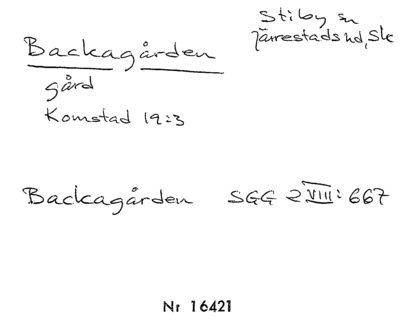 Backagården
Stiby sn
Järrestads hd, Sk
gård
Komstad 19:3
Backagården SGG 2 VIII: 667
Nr 16421